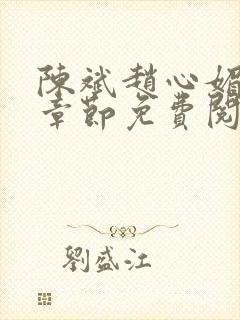 陳斌趙心媚
章節免費閱
劉盛江